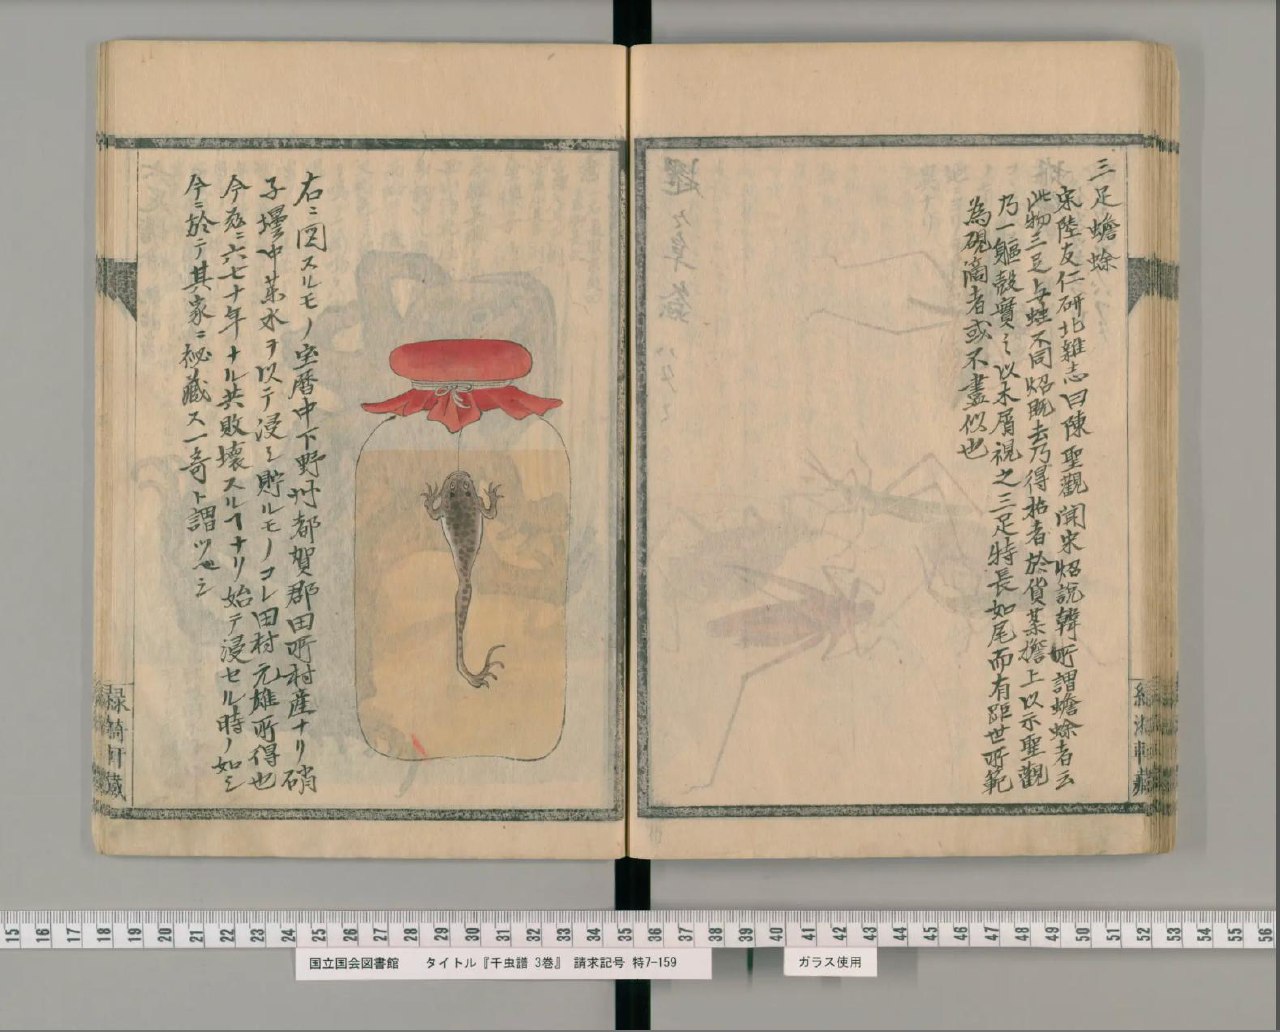 三足蟾蜍
宋陸友仁研北雜志曰陳聖觀聞宋炤説韓所謂蟾蜍者云
此物三足与蛙不同炤既去乃得拈者於貨某擔上以示聖觀
乃一軀殻實之以木屑視之三足特長如尾而有距世所範
為硯滴者或不盡似也
右ニ図スルモノ宝暦中下野州都賀郡田所村産ナリ硝
子壜中薬水ヲ以テ浸シ貯ルモノコレ田村元雄所得也
今茲ニ六七十年ナル共敗壊スルヿナリ始テ浸セル時ノ如シ
今ニ於テ其家ニ秘蔵ス一奇ト謂ツベシ
軒藏
国立国会図書館 タイトル『千虫譜 3巻』 請求記号 特7-159
ガラス使用
15 16 17 18 19 20 21 22 23 24 25 26 27 28 29 30 31 32 33 34 35 36 37 38 39 40 41 42 43 44 45 46 47 48 49 50 51 52 53 54 55 56